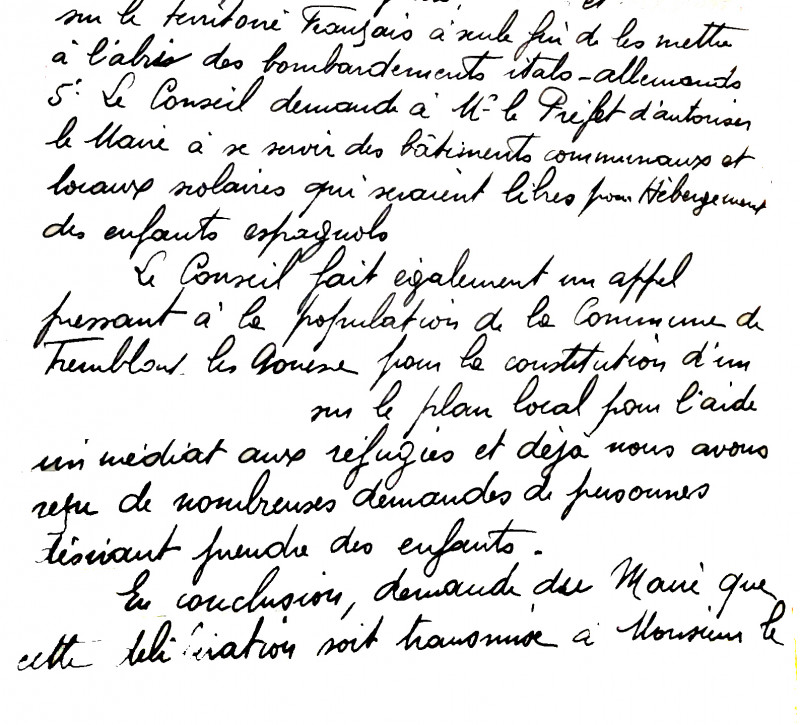 sur le territoire Français à seule fin de les mettre
à l'abris des bombardements italo-allemands
5° Le Conseil demande à Mr le Préfet d'autoriser
le Maire à se servir des bâtiments communaux et
locaux scolaires qui seraient libres pour Hébergement
des enfants espagnols
Le Conseil fait également un appel
pressant à la population de la Commune de
Tremblay les Gonesse pour la constitution d'un
sur le plan local pour l'aide
immédiat aux réfugiés et déjà nous avons
reçu de nombreuses demandes de personnes
désirant prendre des enfants.
En conclusion, demande du Maire que
cette délibération soit transmise à Monsieur le